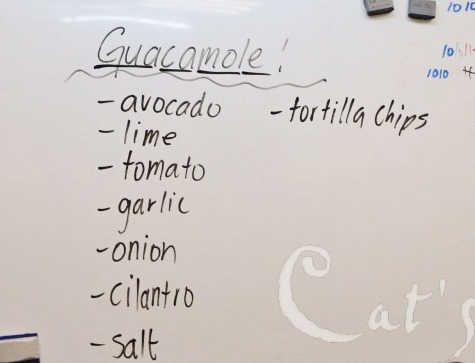 Guacamole!
- avocado
- lime
- tomato
- garlic
- onion
- cilantro
- salt
- tortilla chips
1010
1010
Cat's